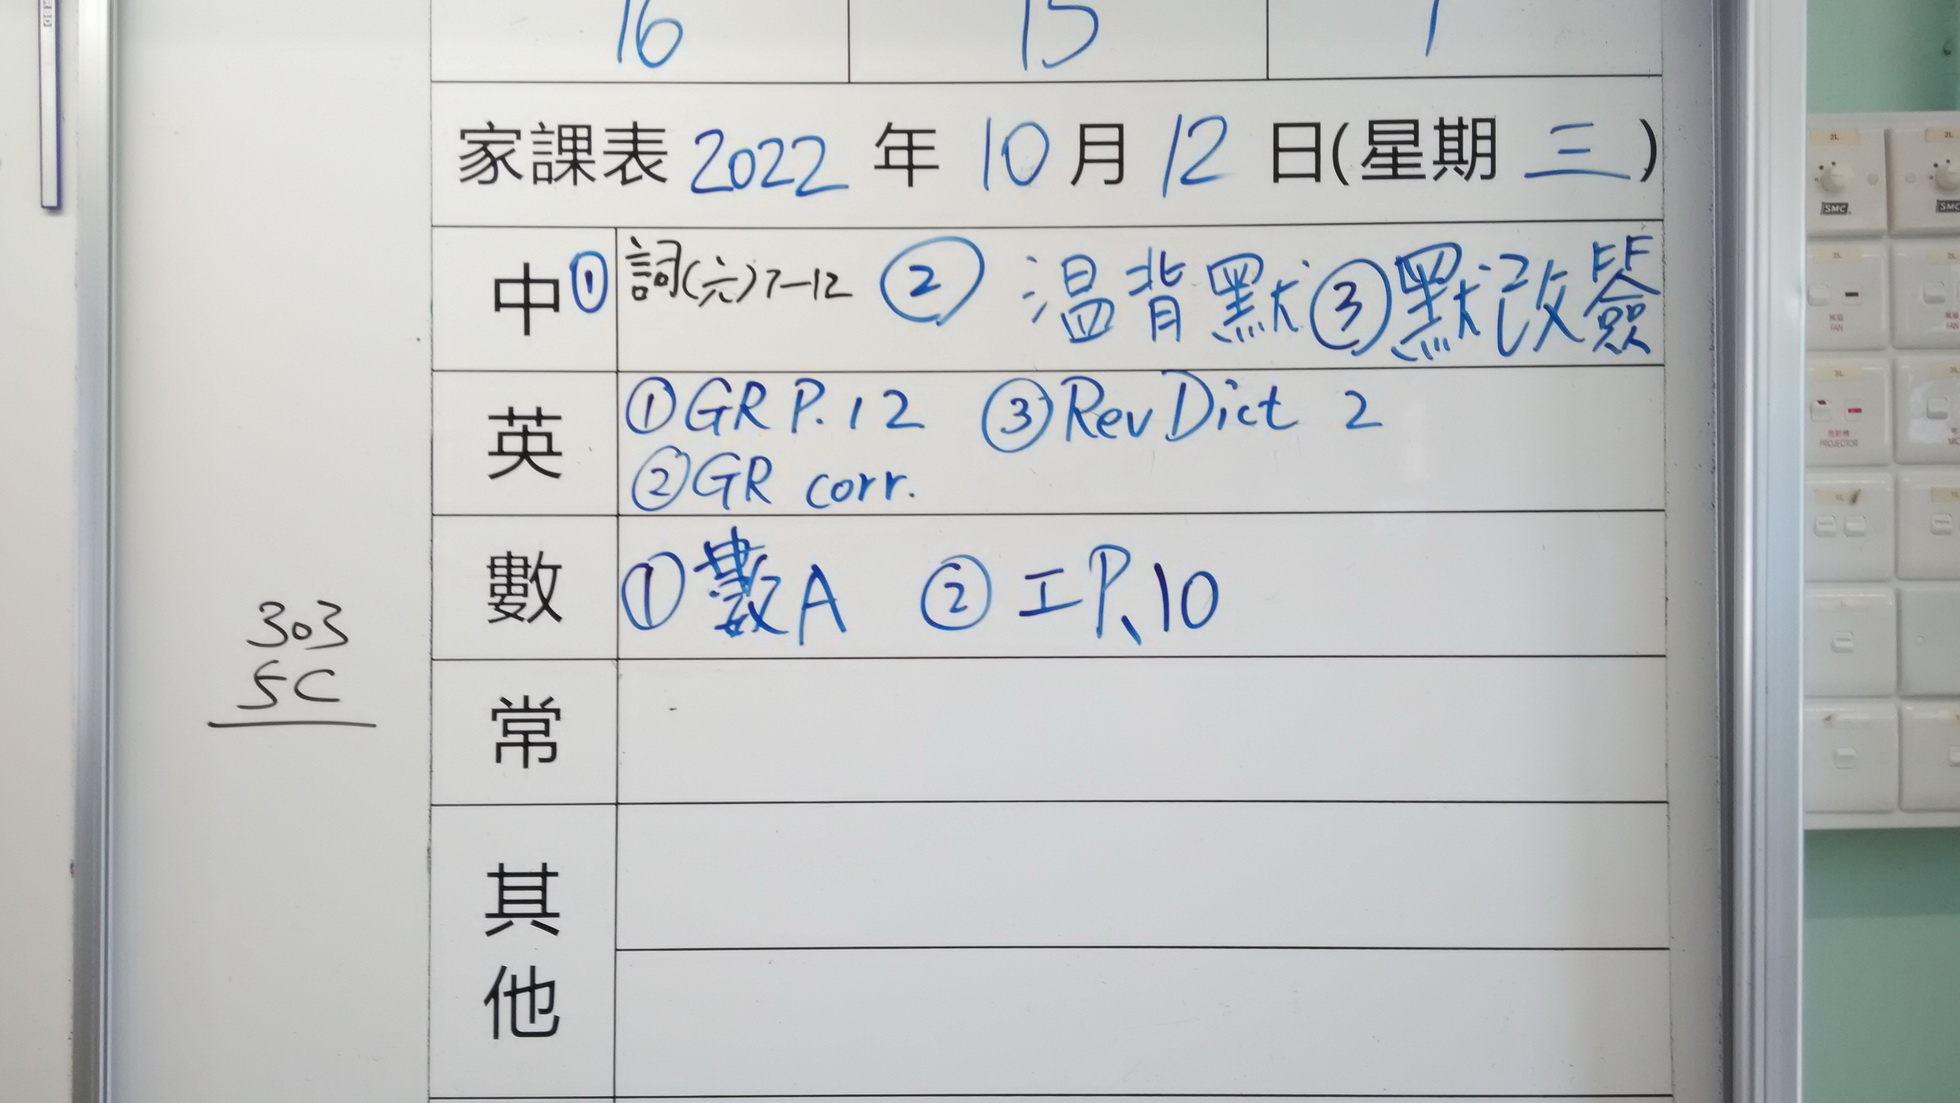 16 15 1
家課表 2022 年 10 月 12 日(星期 三)
中 ① 詞(六)7-12 ② 温背默 ③ 默改簽
英 ① GR P.12 ③ Rev Dict 2
② GR corr.
數 ① 數A ② 工 P.10
303
5C
常
其
他
SMC
SMC
FAN
PROJECTOR